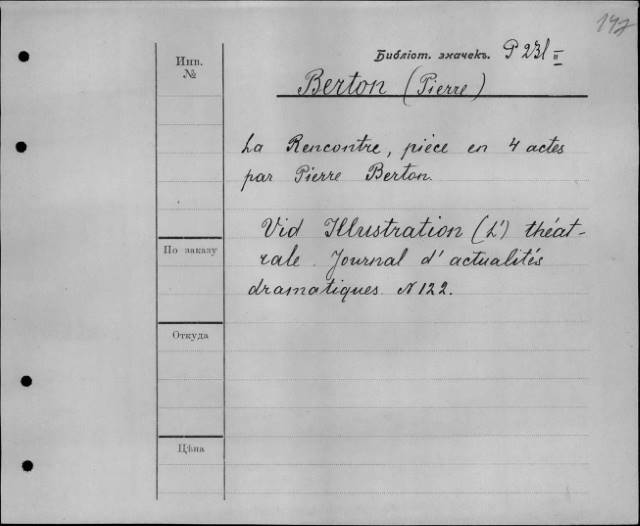 147
Инв.
№
Библіот. значекъ. P 231 II
Berton (Pierre)
La Rencontre, pièce en 4 actes
par Pierre Berton.
Vid Illustration (L') théat-
rale. Journal d'actualités
dramatiques. N 122.
По заказу
Откуда
Цѣна